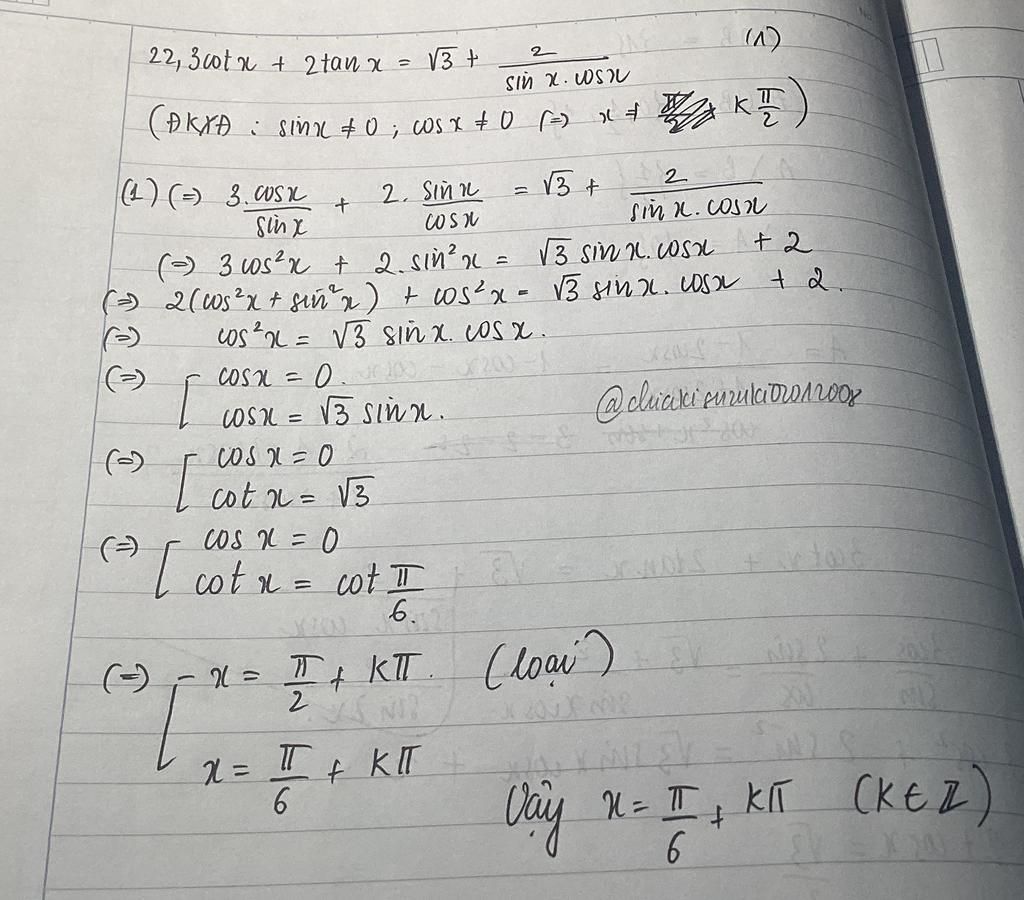 22, 3cot x + 2tan x = √3 + 2/(sin x . cos x) (1)
(ĐKXĐ : sin x ≠ 0 ; cos x ≠ 0 (=) x ≠ k π/2)
(1) (=) 3. cos x/sin x + 2. sin x/cos x = √3 + 2/(sin x . cos x)
(=) 3 cos²x + 2. sin²x = √3 sin x. cos x + 2
(=) 2(cos²x + sin²x) + cos²x = √3 sin x. cos x + 2.
(=) cos²x = √3 sin x. cos x.
(=) [ cos x = 0.
cos x = √3 sin x.
@chiakisuzuki02012008
(=) [ cos x = 0
cot x = √3
(=) [ cos x = 0
cot x = cot π/6.
(=) [ x = π/2 + kπ. (loại)
x = π/6 + kπ
Vậy x = π/6 + kπ (k ∈ Z)